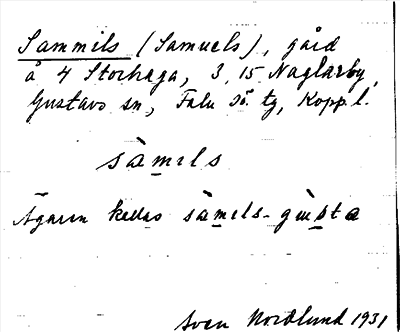 Sammils (Samuels), gård
å 4 Storhaga, 3, 15 Naglarby,
Gustavs sn, Falu sö. tg, Kopp. l.
sàmils
Ägaren kallas sàmels-gùsta
Sven Nordlund 1931